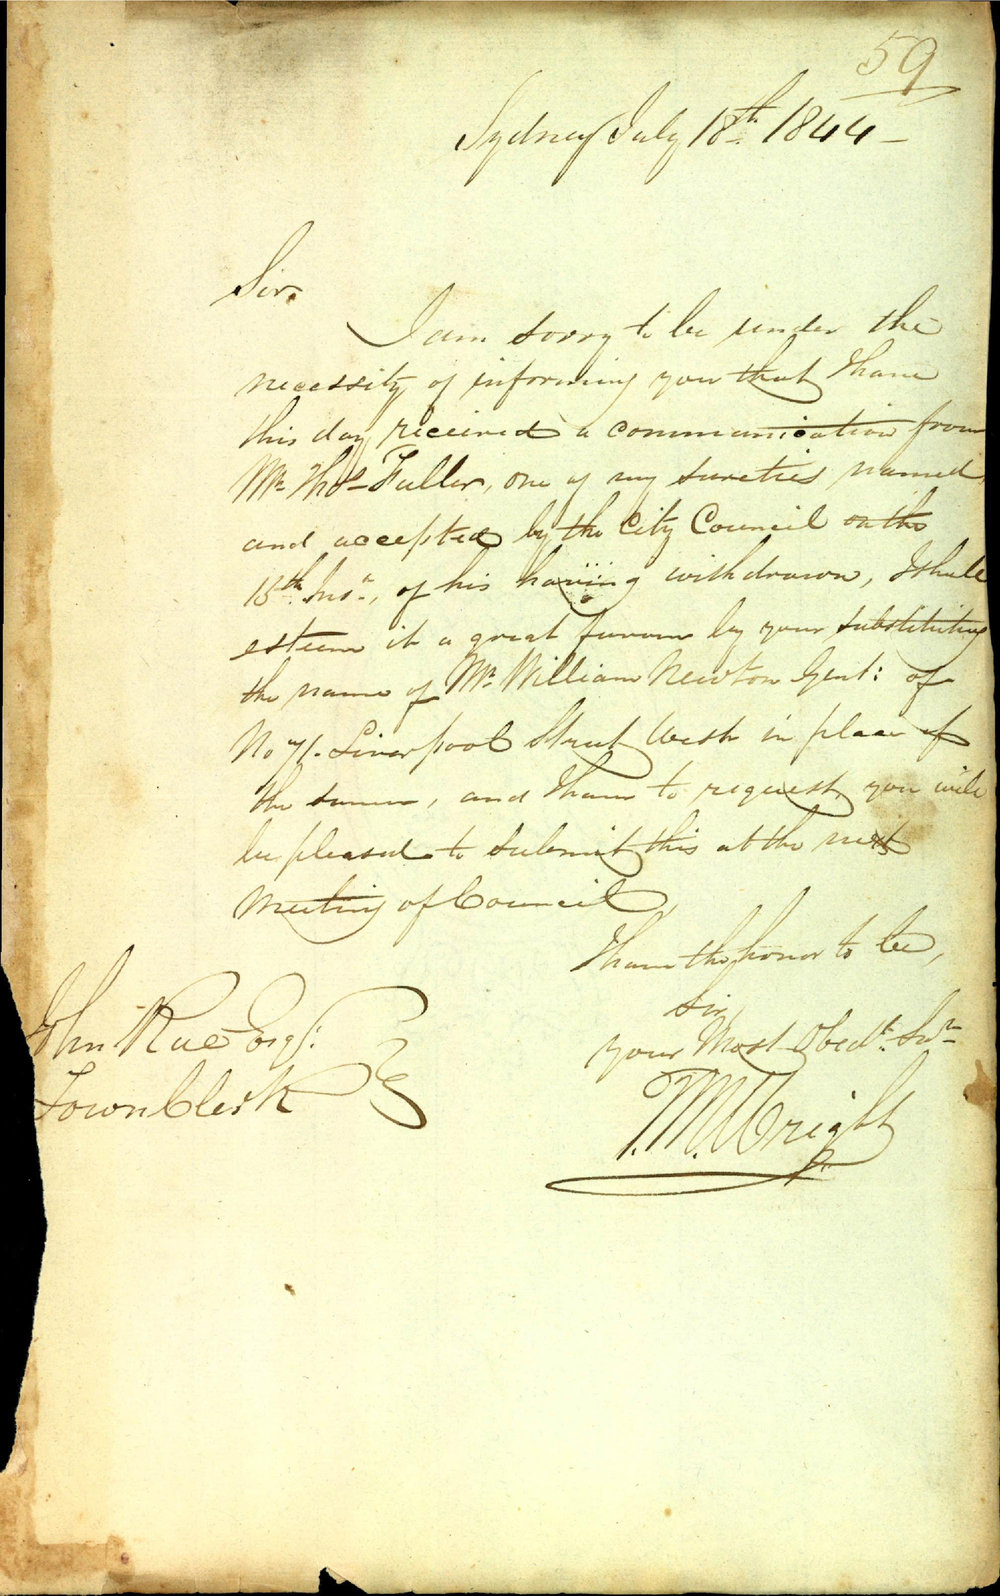 59
Sydney July 18th 1844 -
Sir,
I am sorry to be under the
necessity of informing you that I have
this day received a communication from
Mr. Thos. Fuller, one of my sureties named,
and accepted by the City Council on the
15th Inst., of his having withdrawn, I shall
esteem it a great favour by your substituting
the name of Mr. William Newton Gent: of
No 71. Liverpool Street West in place of
the same, and I have to request, you will
be pleased to submit this at the next
Meeting of Council,
I have the honor to be,
Sir,
your Most Obedt. Svt.
T. M. Wright
John Rae Esq:
Town Clerk